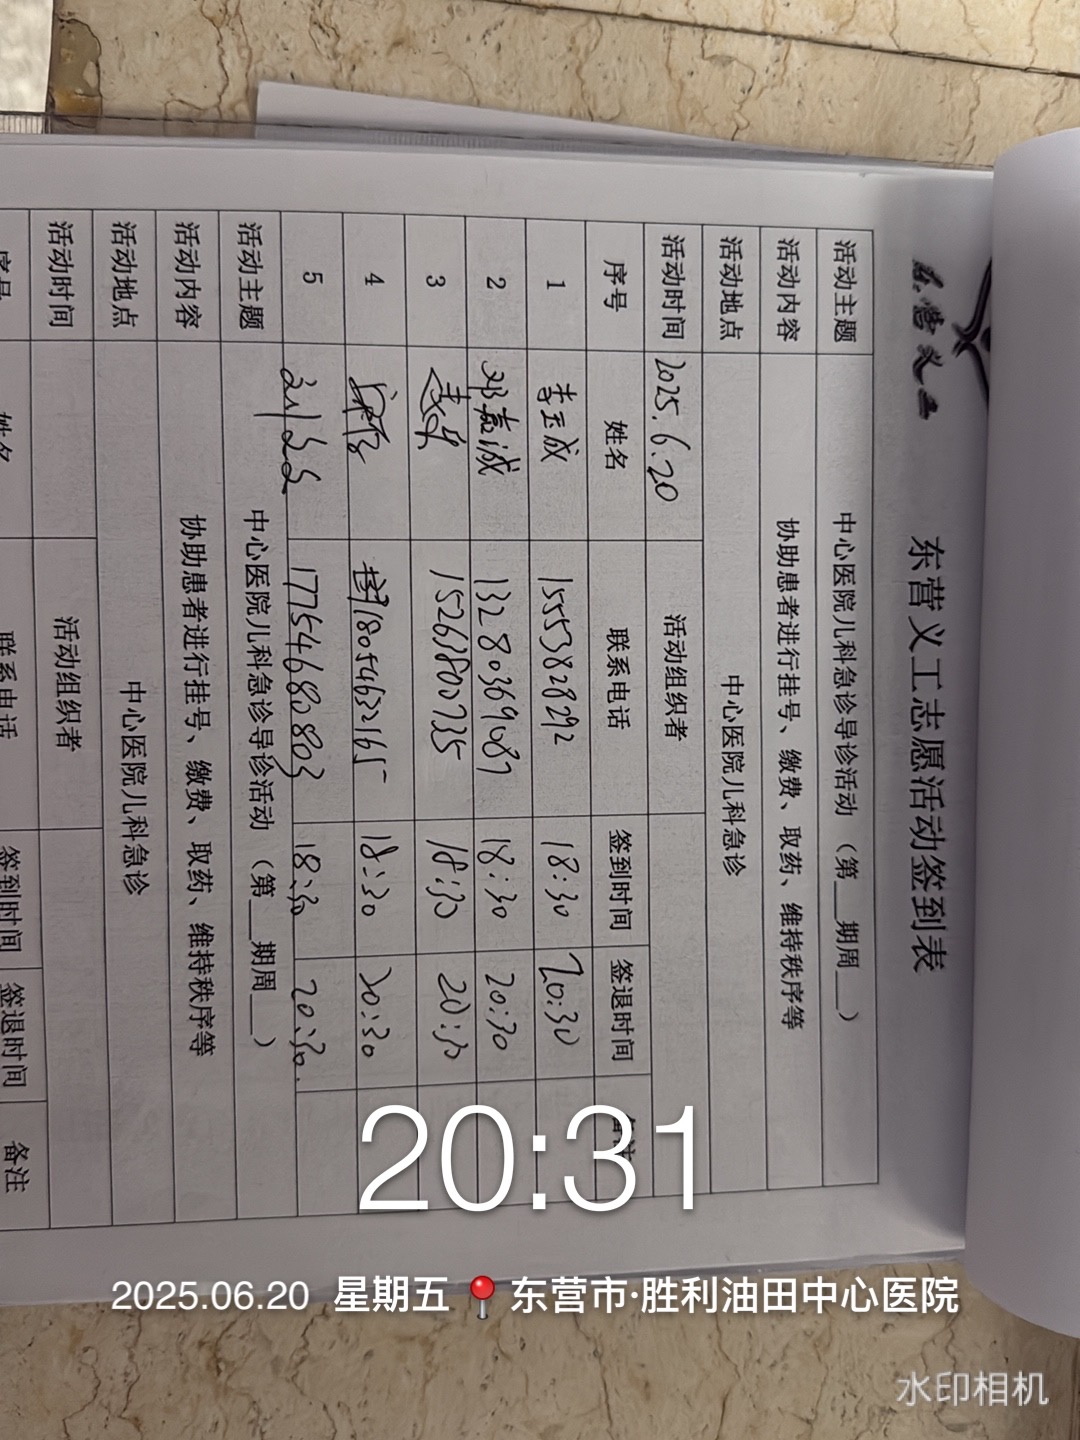 东营义工
东营义工志愿活动签到表
活动主题 中心医院儿科急诊导诊活动（第__期周__）
活动内容 协助患者进行挂号、缴费、取药、维持秩序等
活动地点 中心医院儿科急诊
活动时间 2025.6.20 活动组织者
序号 姓名 联系电话 签到时间 签退时间 备注
1 李玉成 15553828292 18:30 20:30
2 邓嘉诚 13280369087 18:30 20:30
3 15263800735 18:30 20:30
4 18054632165 18:30 20:30
5 17754680803 18:30 20:30.
活动主题 中心医院儿科急诊导诊活动（第__期周__）
活动内容 协助患者进行挂号、缴费、取药、维持秩序等
活动地点 中心医院儿科急诊
活动时间 活动组织者
序号 姓名 联系电话 签到时间 签退时间 备注
20:31
2025.06.20 星期五 东营市·胜利油田中心医院
水印相机